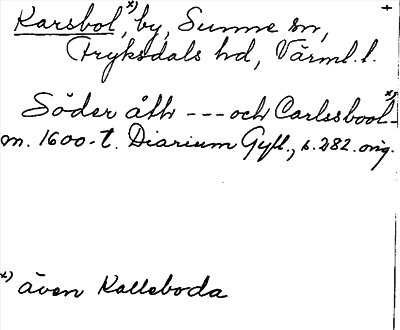 Karsbol x), by, Sunne sn,
Fryksdals hd, Värml. l.
Söder åth --- och Carlssbool x)-
m. 1600-t. Diarium Gyll., s. 282. orig.
x) även Kalleboda